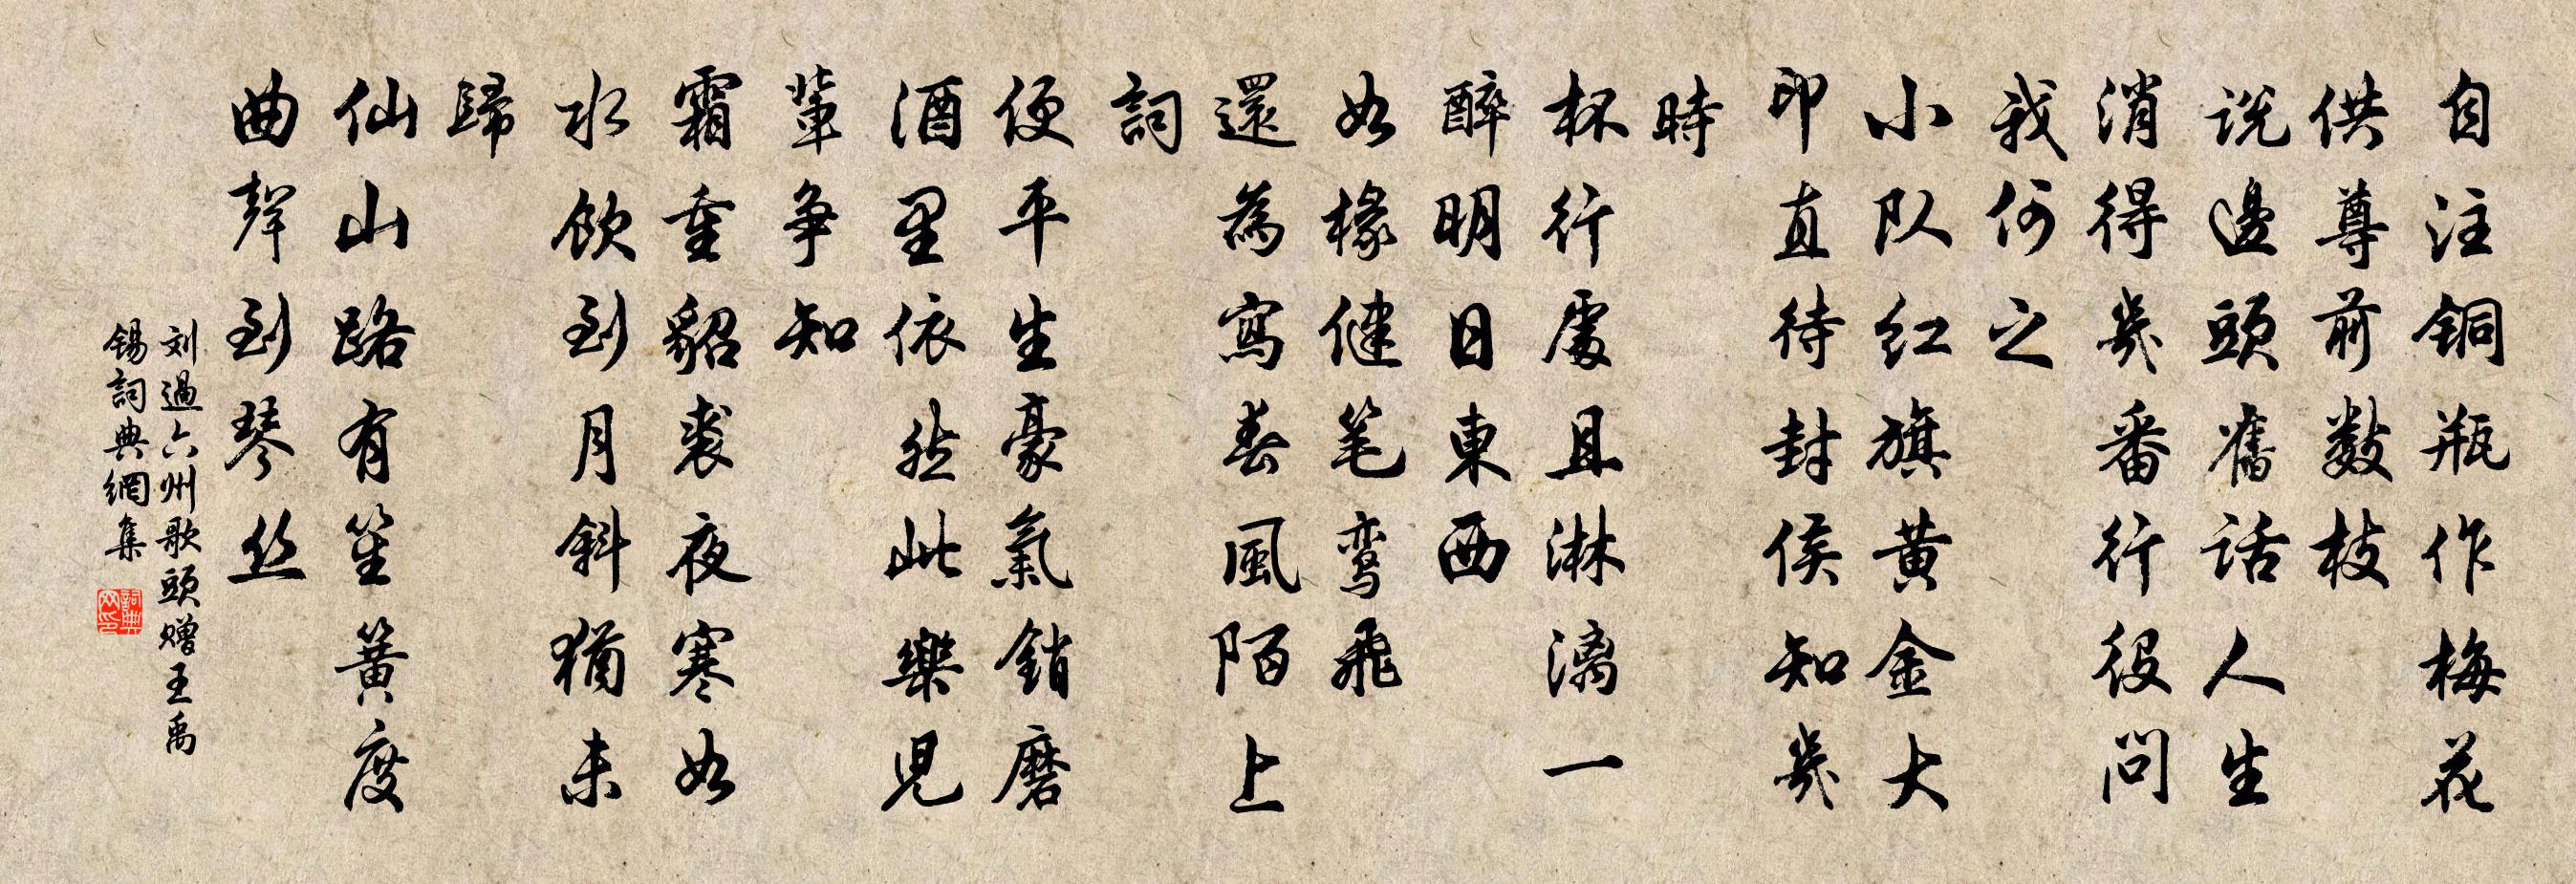 自注铜瓶作梅花
供尊前数枝
说邊頭舊话人生
消得幾番行役问
我何之
小队红旗黄金大
印直待封侯知幾
時
杯行處且淋漓一
醉明日東西
如椽健笔鸾飛
還為寫春風陌上
詞
便平生豪氣銷磨
酒里依然此樂兒
輩争知
霜重貂裘夜寒如
水飲到月斜猶未
歸
仙山路有笙簧度
曲聲到琴丝
刘過六州歌頭贈王禹
錫詞典網集
詞典网印